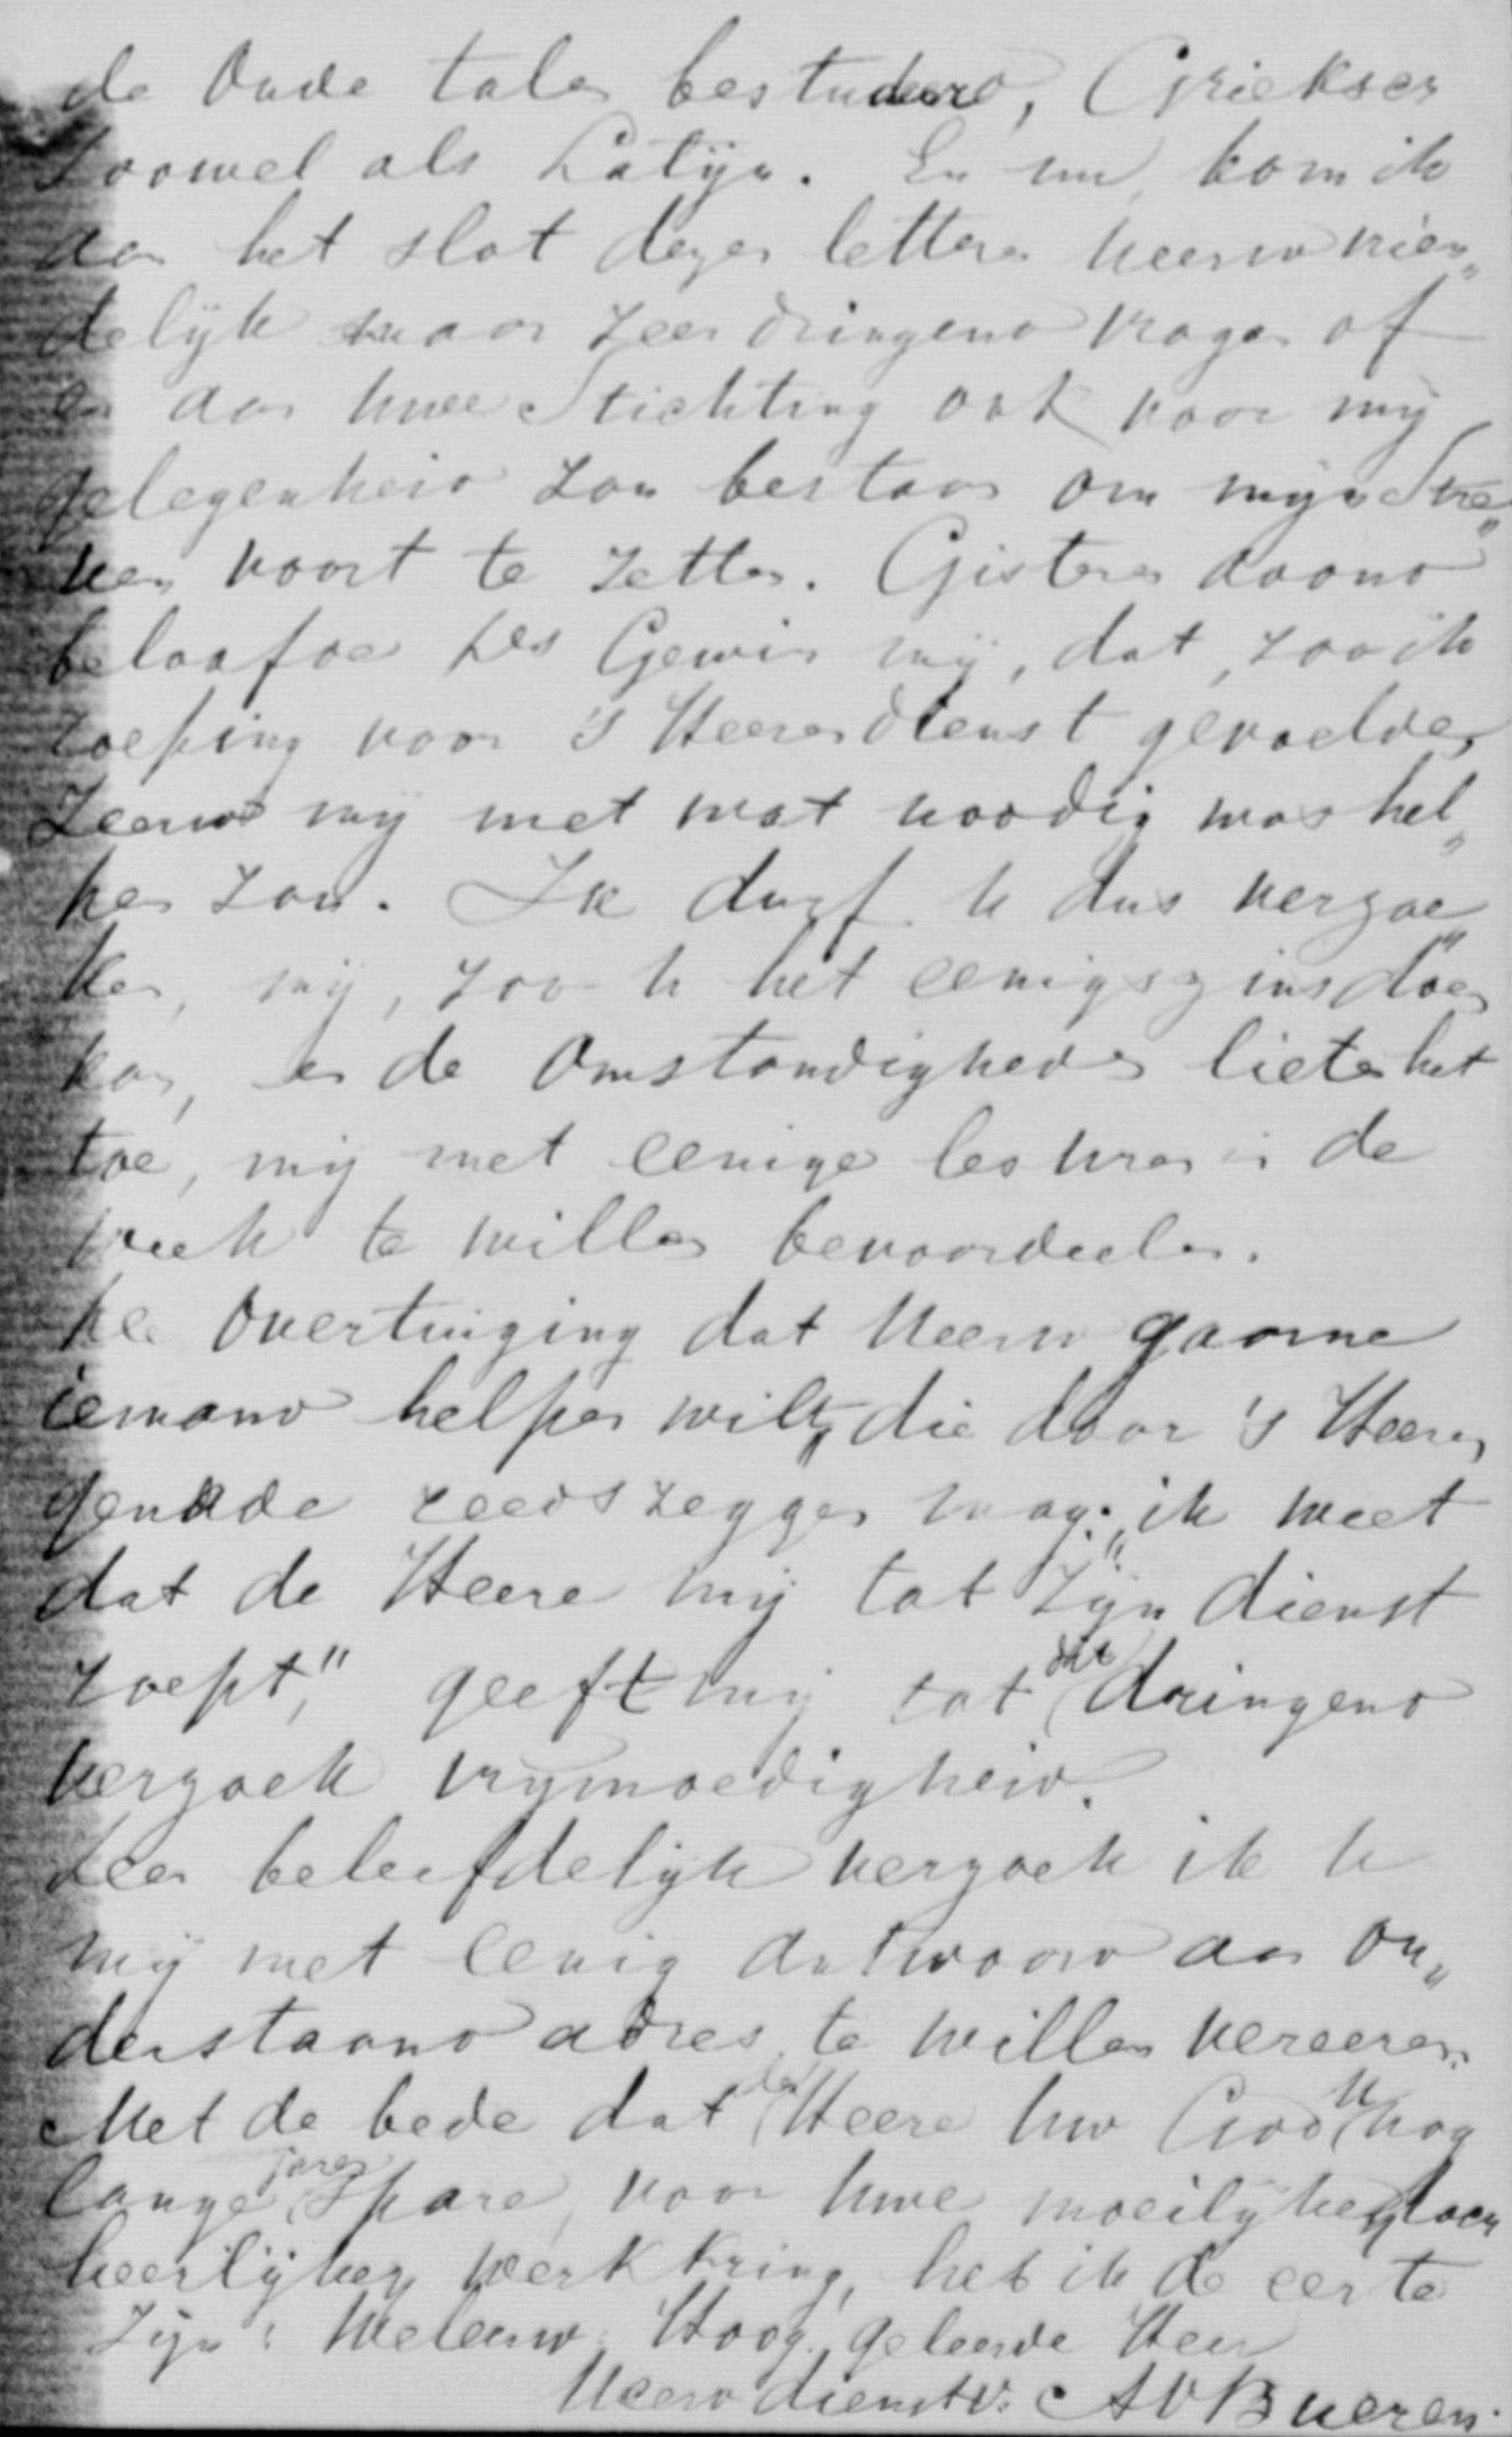 de Oude talen bestudeerd, Grieksch
zoowel als Latijn. En nu kom ik
aan het slot dezer letteren Ueerw vrien„
delijk maar zeer dringend vragen of
er aan Uwe Stichting ook voor mij
gelegenheid zou bestaan om mijn Stre„
ven voort te zetten. Gisteren avond
beloofde Ds Gewin mij, dat, zoo ik
roeping voor 's Heeren dienst gevoelde,
Zeerw mij met wat noodig was hel„
pen zou. Ik durf U dus verzoe„
ken, mij, zoo U het eenigszins doen
kan, en de Omstandigheden lieten het
toe, mij met eenige lesuren in de
week te willen bevoordeelen.
De Overtuiging dat Ueerw gaarne
iemand helpen wilt, die door 's Heeren
genade reeds zeggen mag: „ik weet
dat de Heere mij tot Zijn dienst
roept," geeft mij tot dit dringend
verzoek vrijmoedigheid.
Zeer beleefdelijk verzoek ik U
mij met eenig antwoord aan on„
derstaand adres te willen vereeren.
Met de bede dat de Heere Uw God U nog
lange jaren spare, voor Uwe moeilijken doch
heerlijken werkkring, heb ik de eer te
zijn: Weleerw. Hoog geleerde Heer
Ueerw dienstv: A v Bueren.